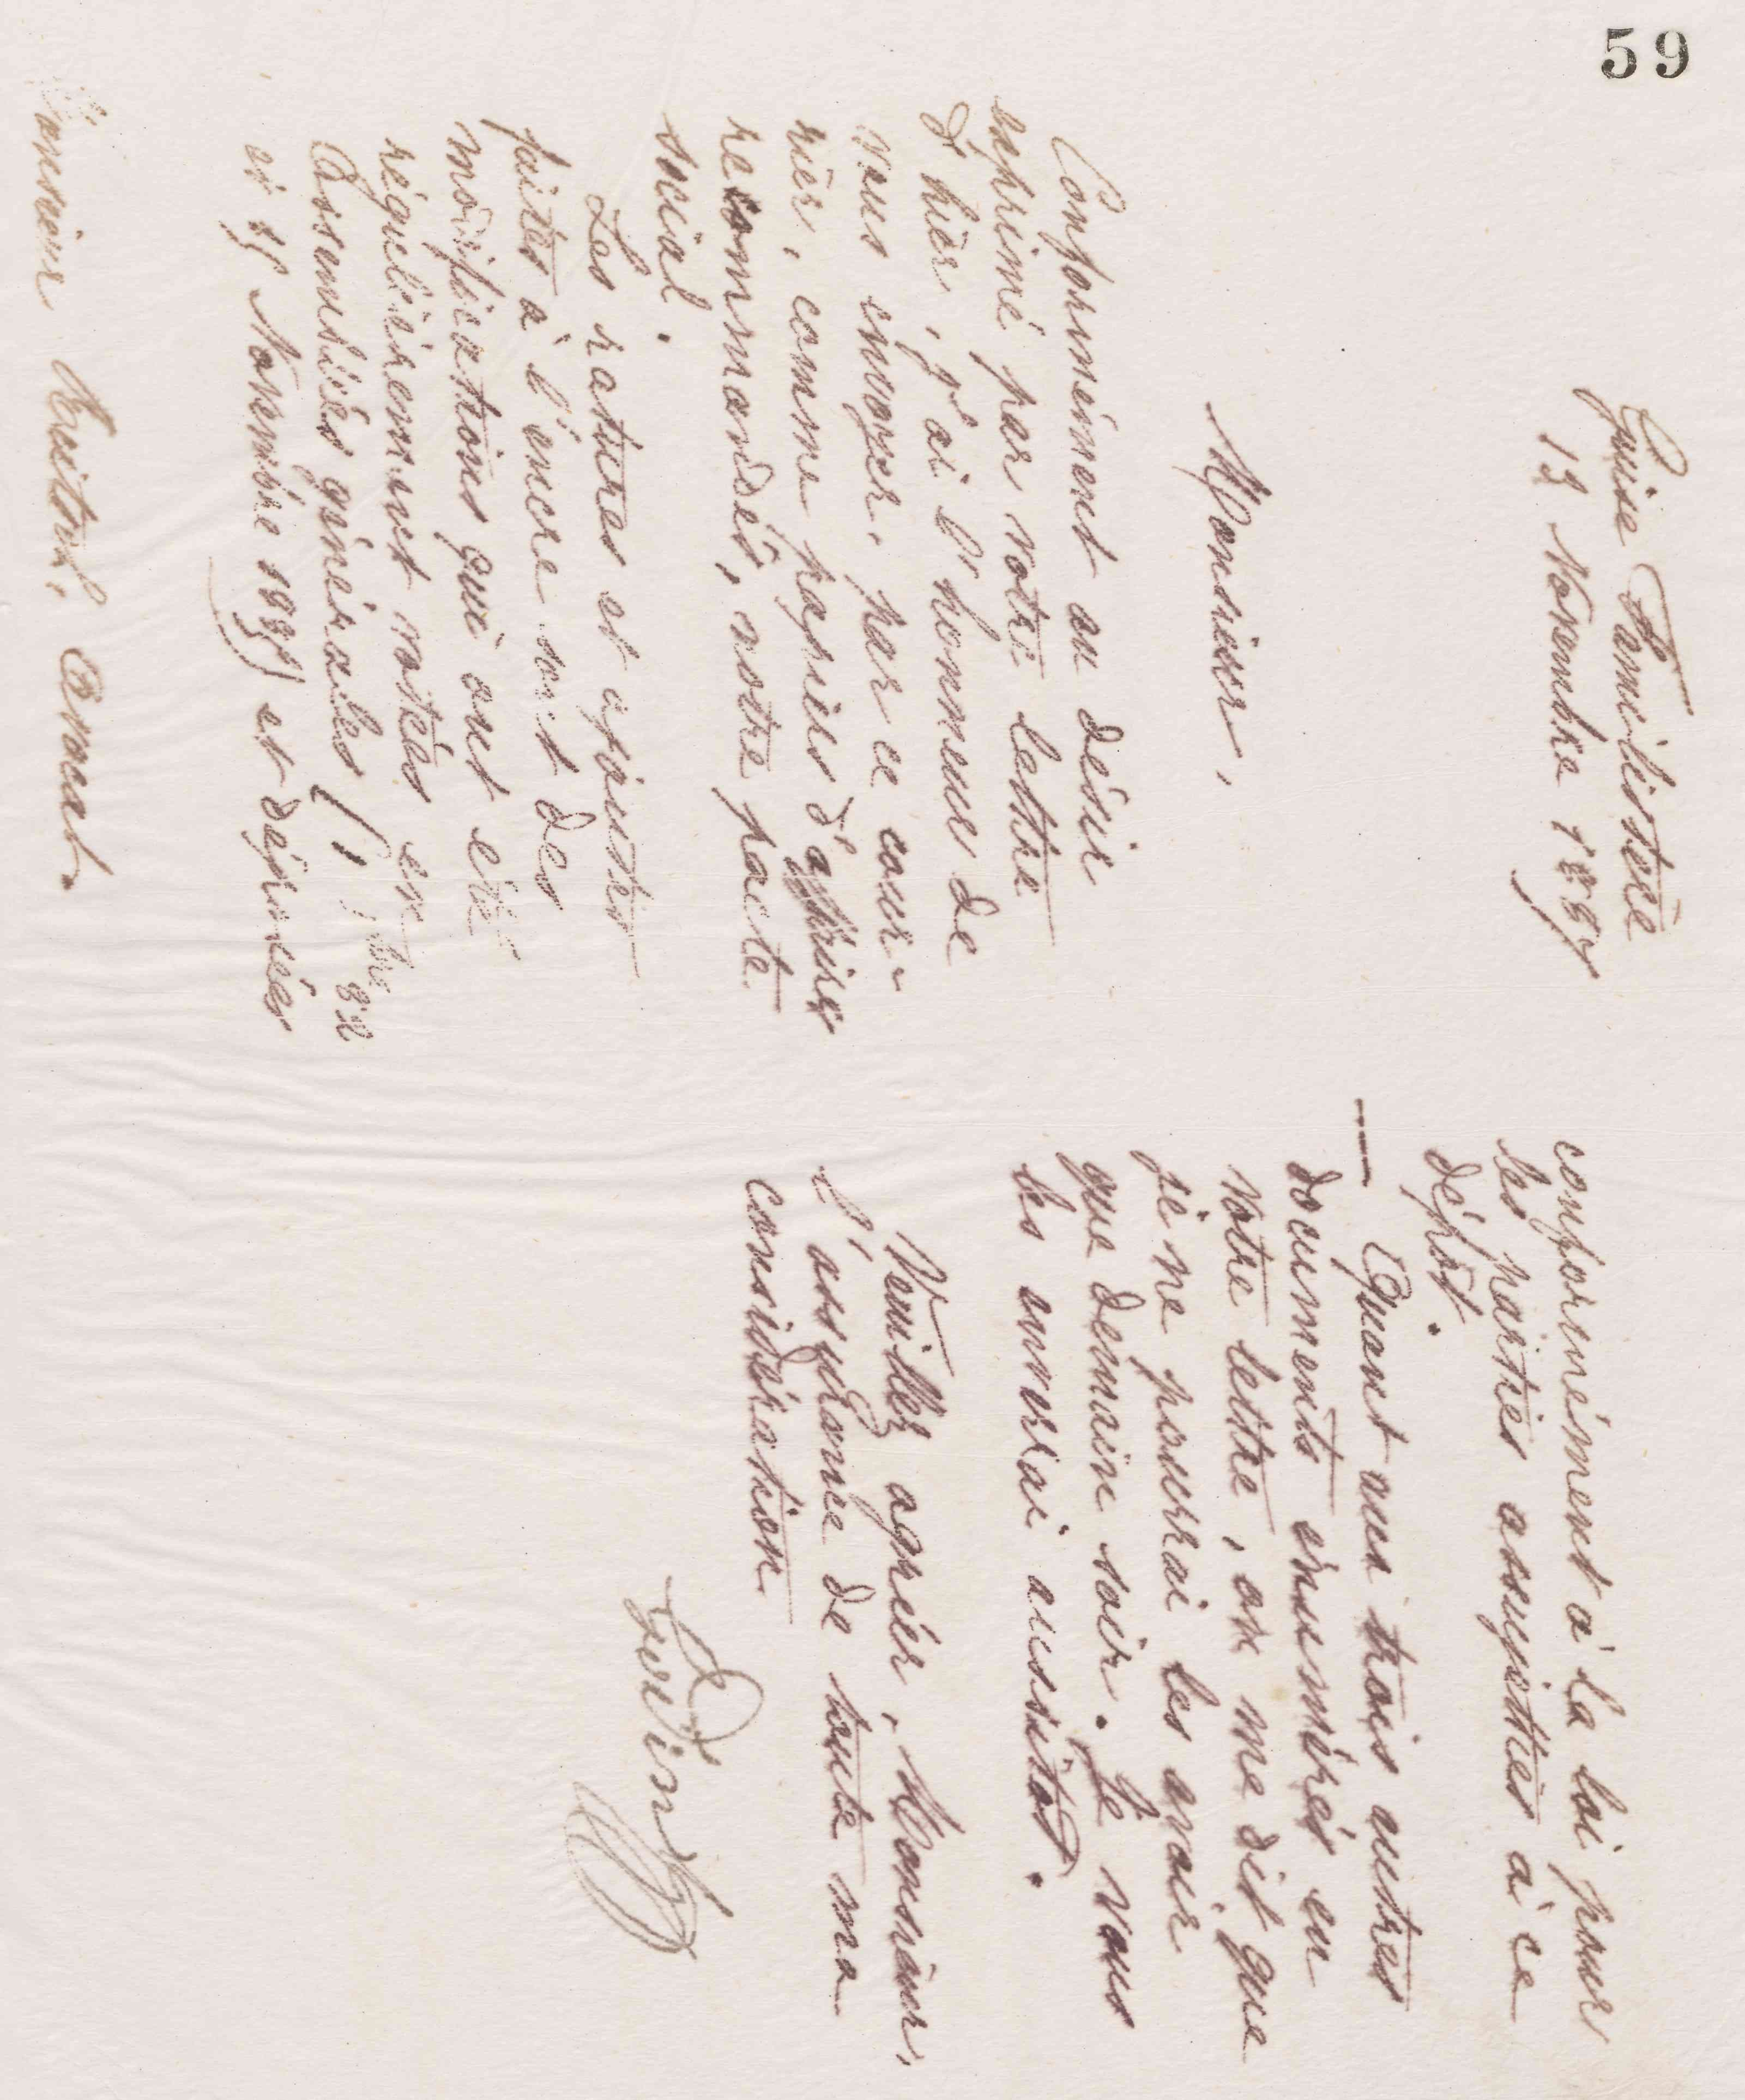 59
Guise Familistère
12 Novembre 1887
Monsieur,
Conformément au désir
exprimé par votre lettre
d'hier, j'ai l'honneur de
vous envoyer, par ce cour-
rier, comme papiers d'affaires
recommandés, notre pacte
social.
Les ratures et ajoutés
faites à l'encre sont des
modifications qui ont été
régulièrement votées en
Assemblées générales (
et Novembre 1885) et déposées
Monsieur Avocat.
conformément à la loi pour
les parties assujetties à ce
dépôt.
— Quant aux trois autres
documents énumérés en
votre lettre, on me dit que
je ne pourrai les avoir
que demain soir. Je vous
les enverrai aussitôt.
Veuillez agréer, Monsieur,
l'assurance de toute ma
considération.
Godin